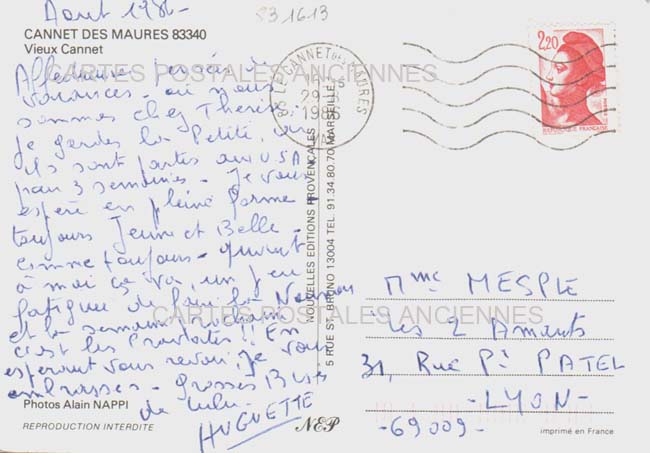 Aout 1986-
83 16 13
CANNET DES MAURES 83340
Vieux Cannet
Affectueuse pensée de
vacances - où nous
sommes chez Thérèse.
je gardes la Petite, car
ils sont partis aux USA
pour 3 semaines - Je vous
espère en pleine forme
toujours Jeune et Belle -
comme toujours - quant
à moi ça va, un peu
fatiguée de faire la Nounou
et la semaine prochaine
c'est les !! En
espérant vous revoir, je vous
embrasses - Grosses Bises
de Lulu -
HUGUETTE
Photos Alain NAPPI
REPRODUCTION INTERDITE
NEP
NOUVELLES EDITIONS PROVENÇALES
5 RUE ST. BRUNO 13004 TEL. 91 34 80 70 MARSEILLE
83 LE CANNET DES MAURES
1986
VAR
2,20
REPUBLIQUE FRANÇAISE
CARTES POSTALES ANCIENNES
CARTES POSTALES ANCIENNES
Mme MESPLE
Les 2 Amants
31, Rue Pt PATEL
- LYON -
- 69009 -
imprimé en France